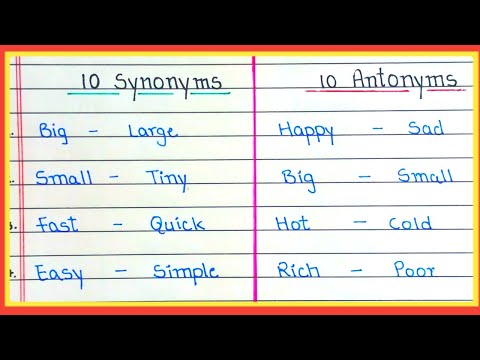 10 Synonyms
Big - Large
Small - Tiny
Fast - Quick
Easy - Simple
10 Antonyms
Happy - Sad
Big - Small
Hot - Cold
Rich - Poor